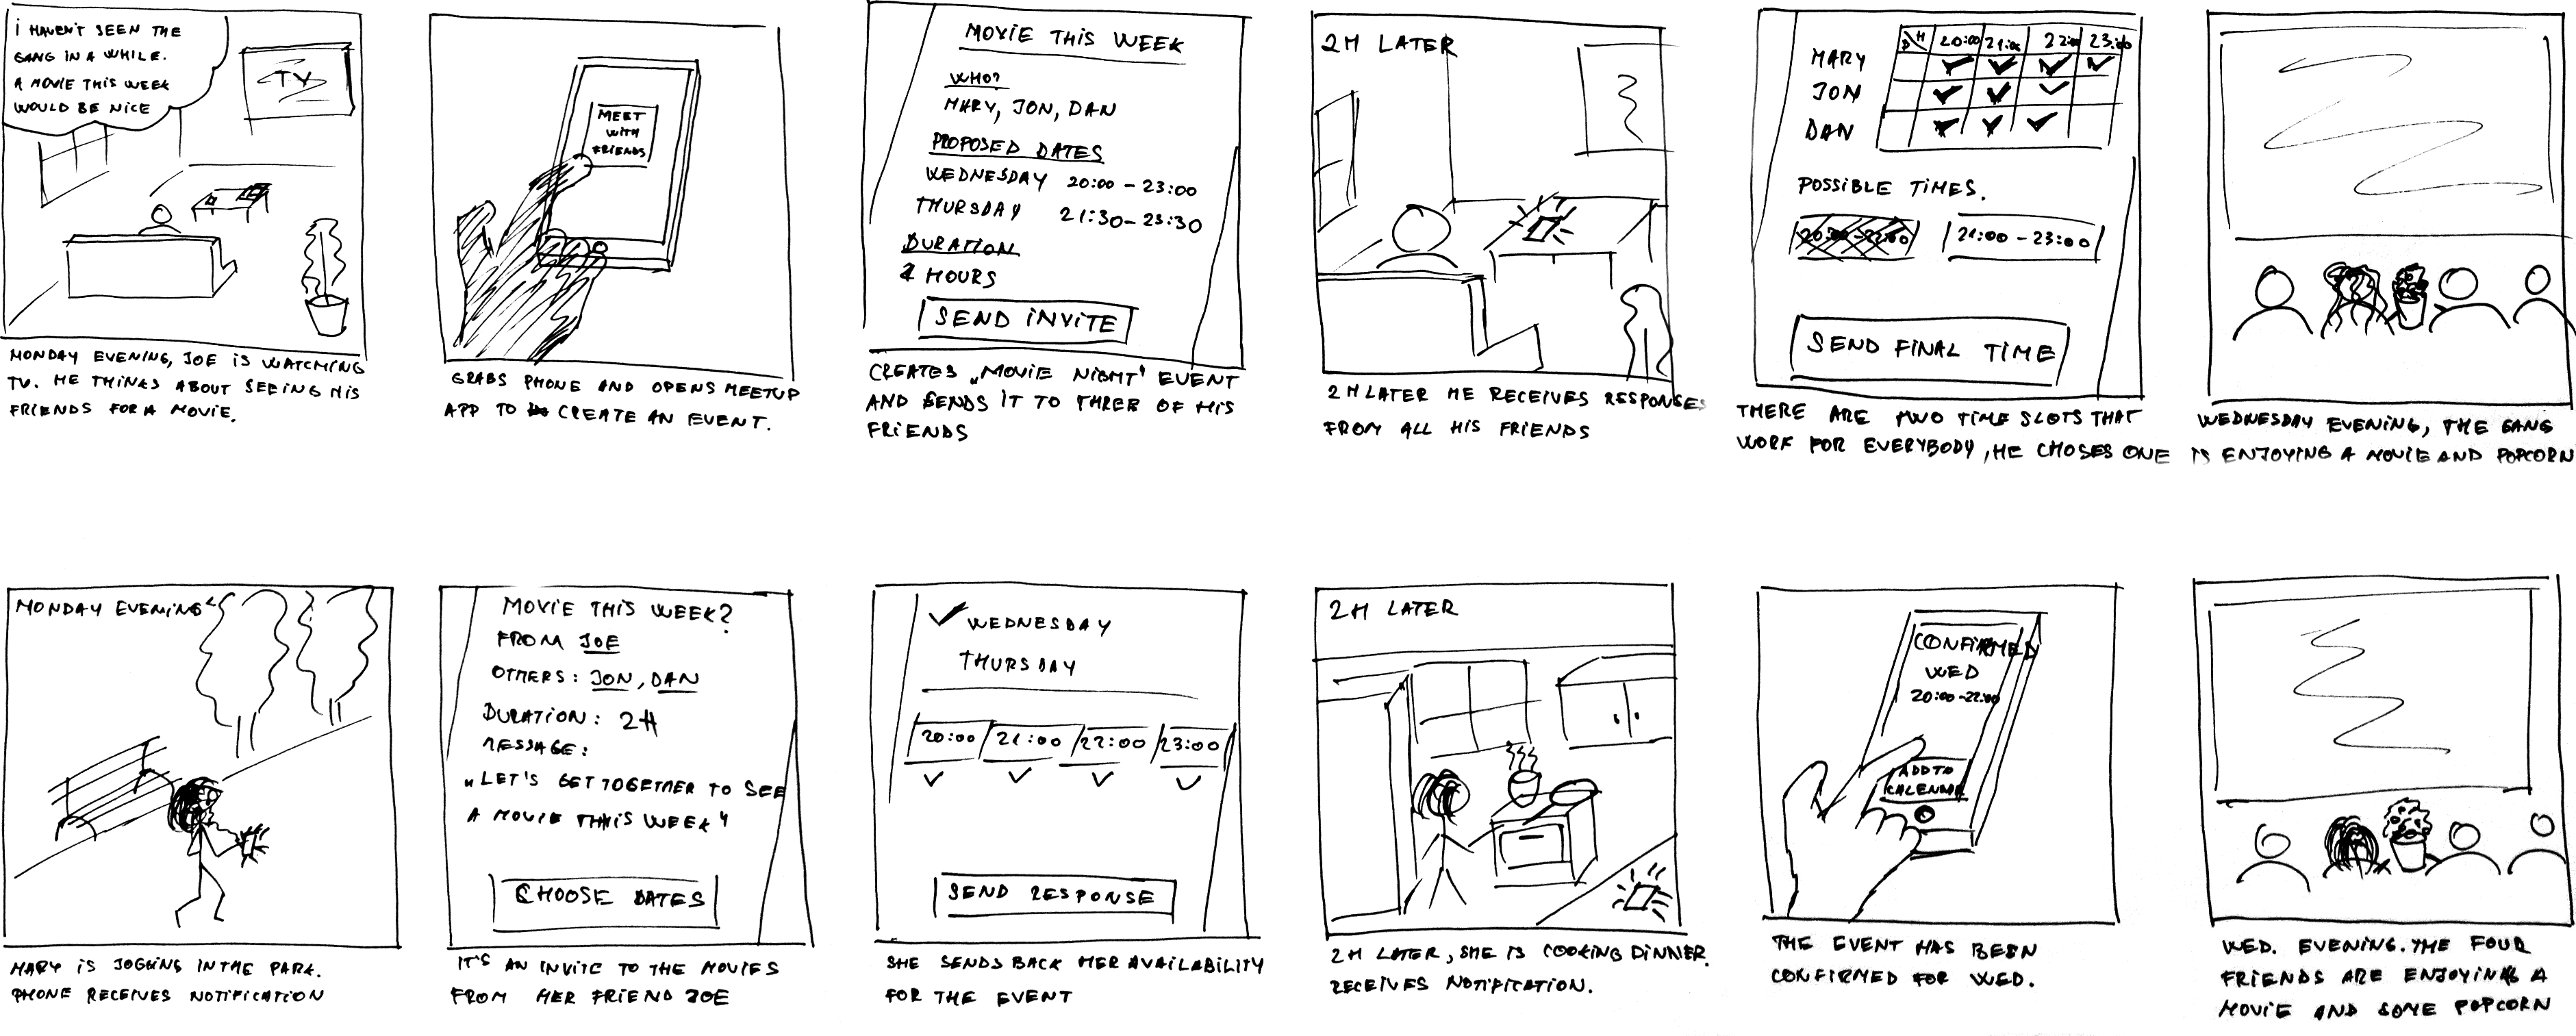 I HAVEN'T SEEN THE
GANG IN A WHILE.
A MOVIE THIS WEEK
WOULD BE NICE
TV
MONDAY EVENING, JOE IS WATCHING
TV. HE THINKS ABOUT SEEING HIS
FRIENDS FOR A MOVIE.
MEET
WITH
FRIENDS
GRABS PHONE AND OPENS MEETUP
APP TO CREATE AN EVENT.
MOVIE THIS WEEK
WHO?
MARY, JON, DAN
PROPOSED DATES
WEDNESDAY 20:00 - 23:00
THURSDAY 21:30 - 23:30
DURATION
2 HOURS
SEND INVITE
CREATES „MOVIE NIGHT" EVENT
AND SENDS IT TO THREE OF HIS
FRIENDS
2H LATER
2H LATER HE RECEIVES RESPONSES
FROM ALL HIS FRIENDS
D H 20:00 21:00 22:00 23:00
MARY
JON
DAN
POSSIBLE TIMES.
20:00 - 22:00 21:00 - 23:00
SEND FINAL TIME
THERE ARE TWO TIME SLOTS THAT
WORK FOR EVERYBODY, HE CHOSES ONE
WEDNESDAY EVENING, THE GANG
IS ENJOYING A MOVIE AND POPCORN
MONDAY EVENING
MARY IS JOGGING IN THE PARK.
PHONE RECEIVES NOTIFICATION
MOVIE THIS WEEK?
FROM JOE
OTHERS: JON, DAN
DURATION: 2H
MESSAGE:
„LET'S GET TOGETHER TO SEE
A MOVIE THIS WEEK"
CHOOSE DATES
IT'S AN INVITE TO THE MOVIES
FROM HER FRIEND JOE
WEDNESDAY
THURSDAY
20:00 21:00 22:00 23:00
SEND RESPONSE
SHE SENDS BACK HER AVAILABILITY
FOR THE EVENT
2H LATER
2H LATER, SHE IS COOKING DINNER.
RECEIVES NOTIFICATION.
CONFIRMED
WED
20:00 - 22:00
ADD TO
CALENDAR
THE EVENT HAS BEEN
CONFIRMED FOR WED.
WED. EVENING. THE FOUR
FRIENDS ARE ENJOYING A
MOVIE AND SOME POPCORN